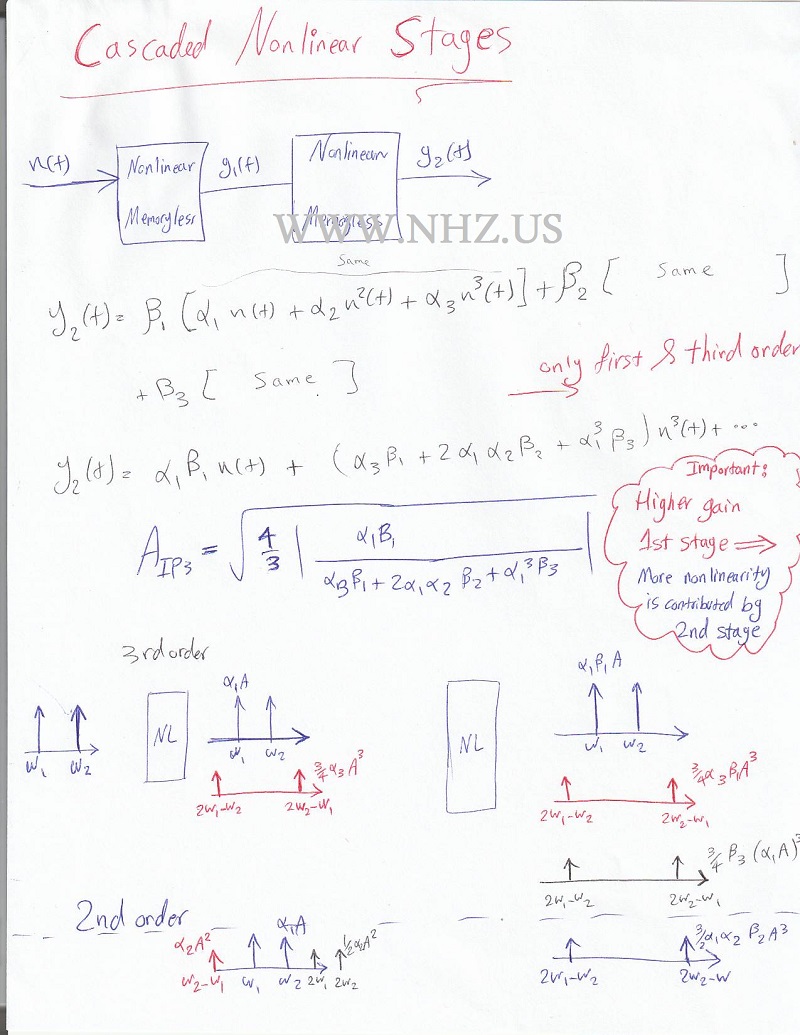 Cascaded Nonlinear Stages
x(t) Nonlinear Memoryless y₁(t) Nonlinear Memoryless y₂(t)
WWW.NHZ.US
Same
y₂(t) = β₁ [α₁ x(t) + α₂ x²(t) + α₃ x³(t)] + β₂ [ Same ]
+ β₃ [ Same ]
only first & third order
y₂(t) = α₁ β₁ x(t) + (α₃ β₁ + 2 α₁ α₂ β₂ + α₁³ β₃) x³(t) + ...
Important:
Higher gain
1st stage ⇒
More nonlinearity
is contributed by
2nd stage
A_IP3 = √ 4/3 | α₁β₁ / α₃β₁ + 2α₁α₂ β₂ + α₁³ β₃ |
3rd order
ω₁ ω₂
NL
α₁A
ω₁ ω₂
3/4 α₃ A³
2ω₁-ω₂ 2ω₂-ω₁
NL
α₁β₁A
ω₁ ω₂
3/4 α₃ β₁A³
2ω₁-ω₂ 2ω₂-ω₁
3/4 β₃ (α₁A)³
2ω₁-ω₂ 2ω₂-ω₁
2nd order
α₂A² α₁A 1/2 α₂A²
ω₂-ω₁ ω₁ ω₂ 2ω₁ 2ω₂
3/2 α₁α₂ β₂A³
2ω₁-ω₂ 2ω₂-ω